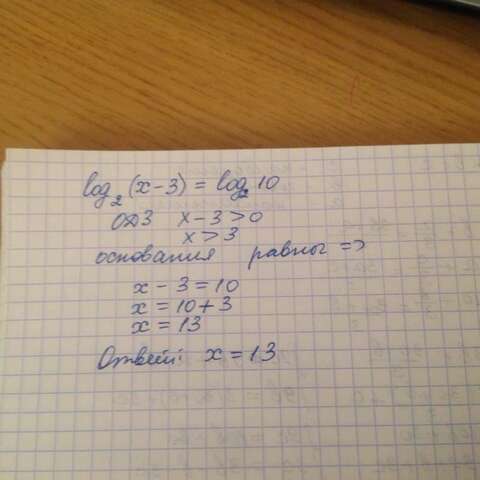 log₂(x-3) = log₂10
ОДЗ x-3>0
x>3
основания равны =>
x-3=10
x=10+3
x=13
Ответ: x=13